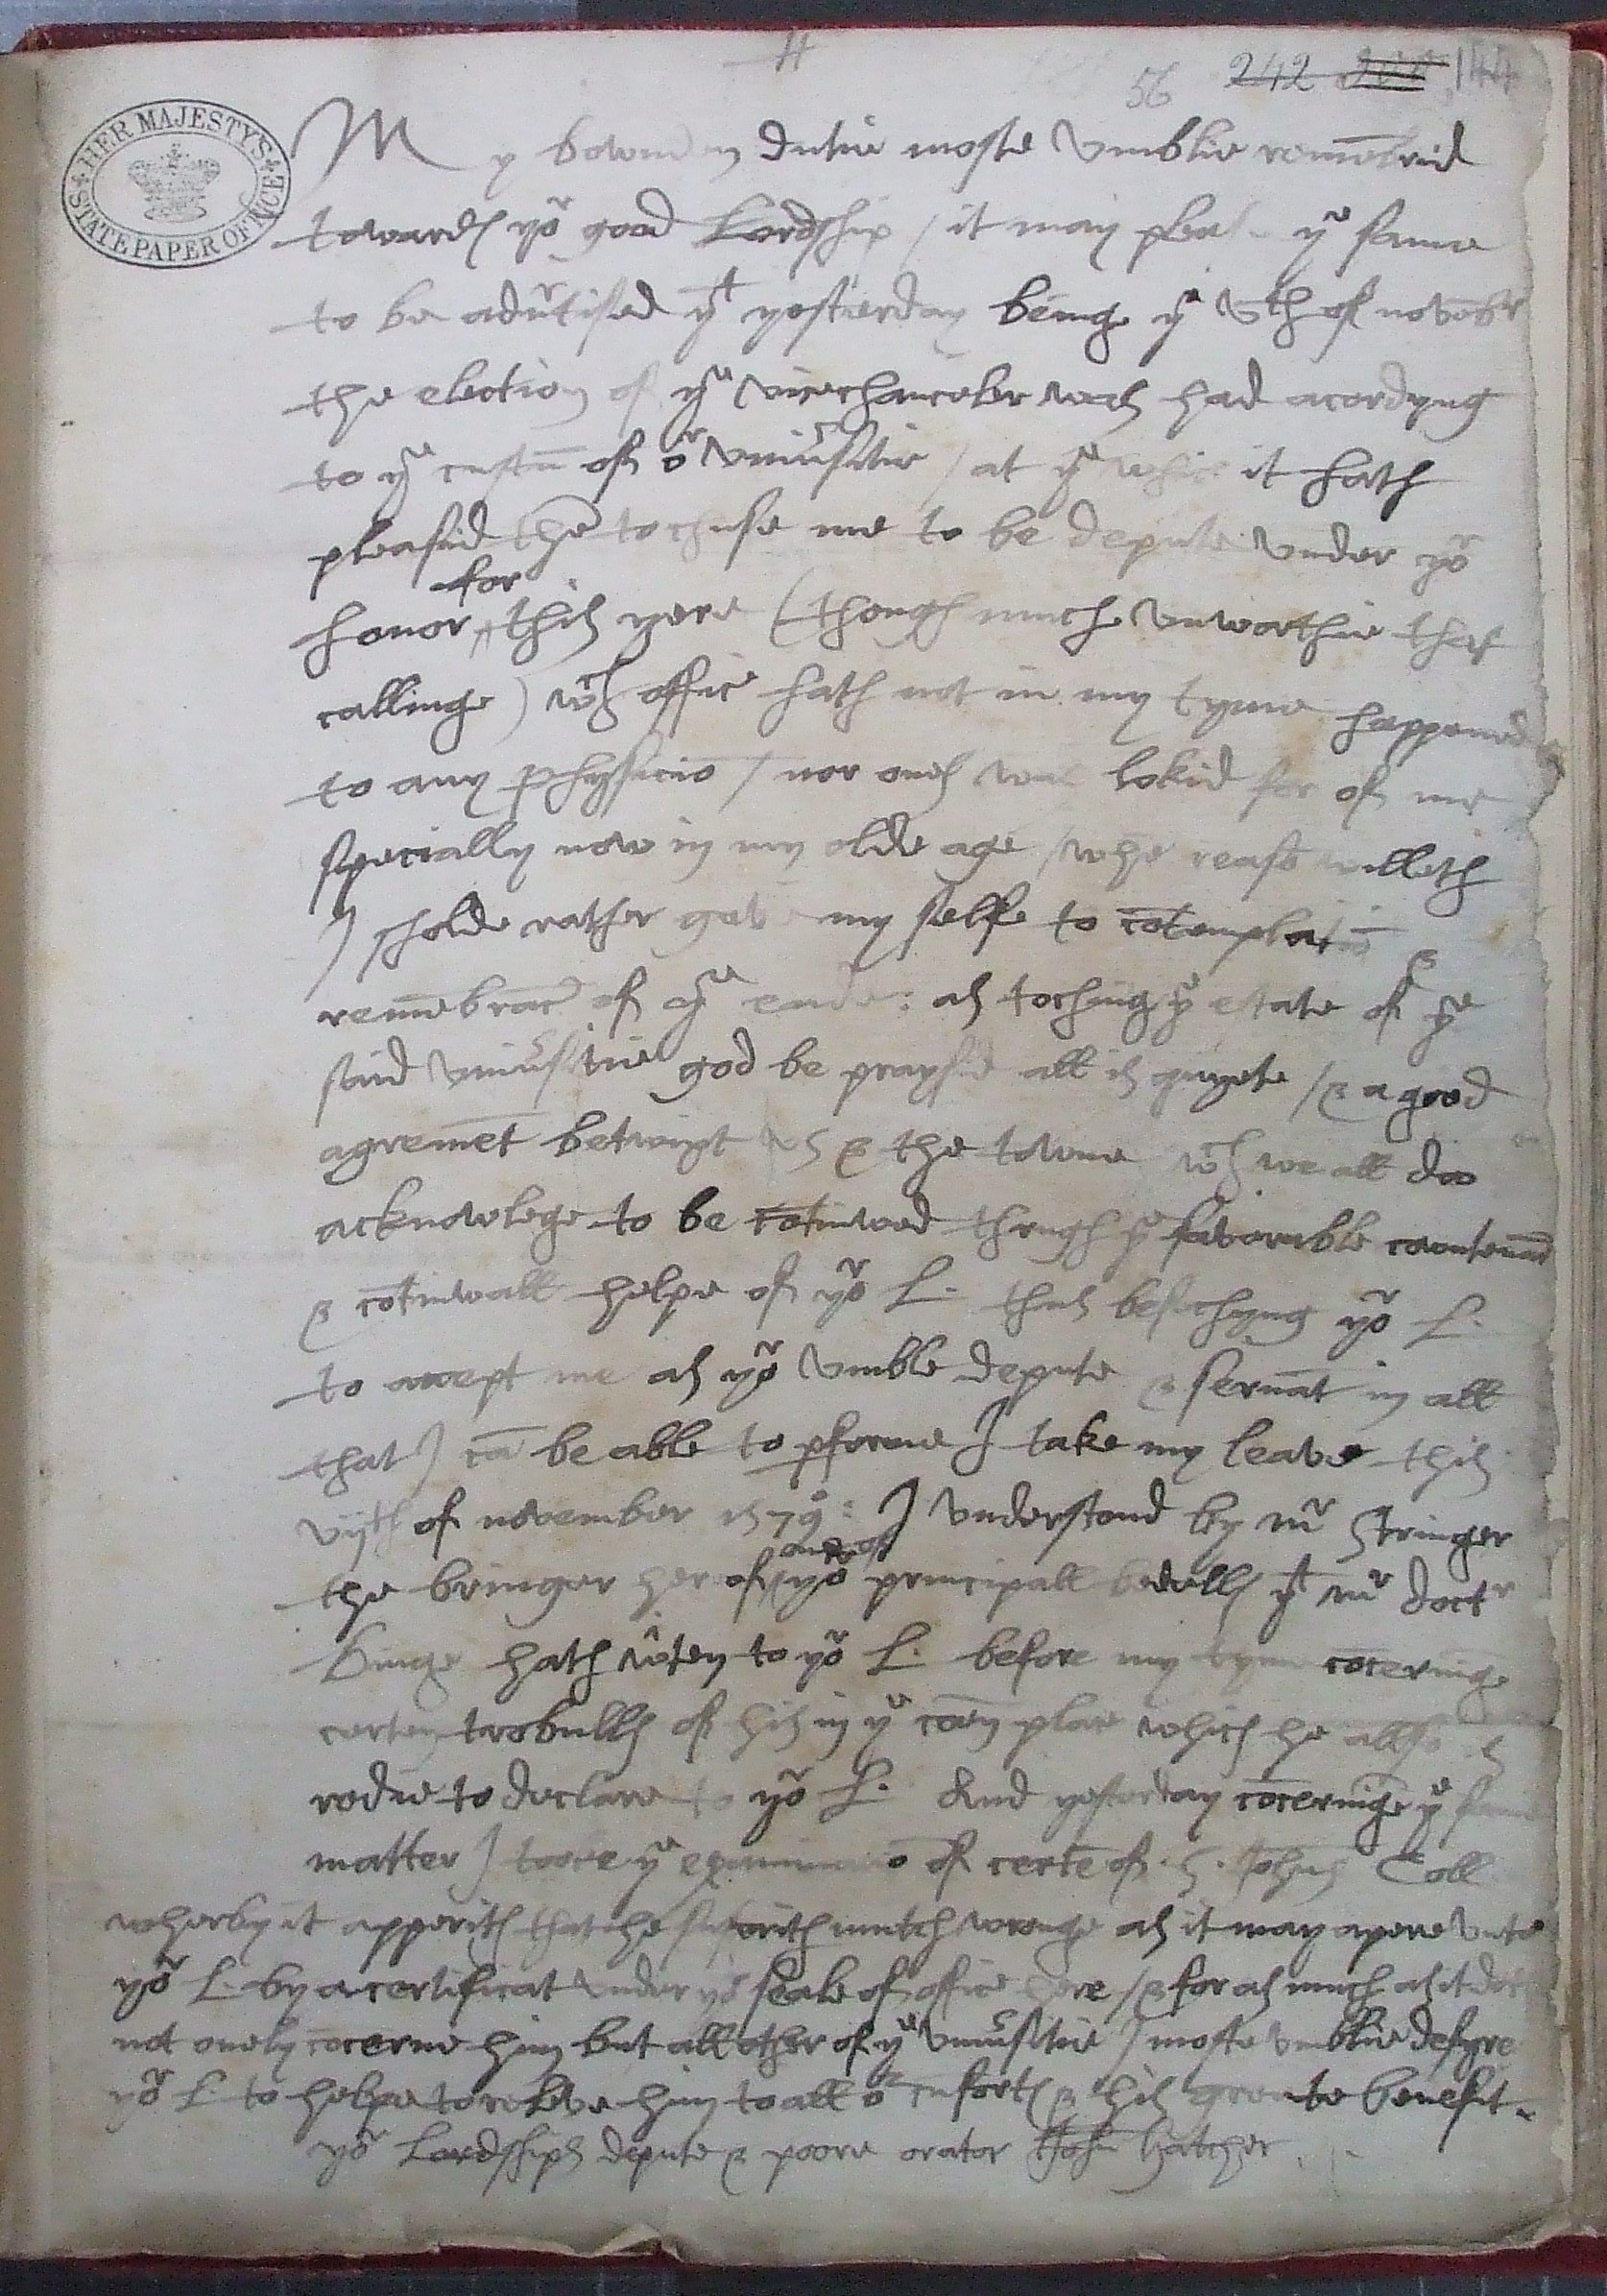 H
56 242 144
HER MAJESTY'S STATE PAPER OFFICE
My bownden dutie moste vmblie remēbrid
towards yor good Lordship / it may pleas ye same
to be adūtised yt yesterday beinge ye vth of novēbr
the election of ye vicechanceler was had acordyng
to ye custū of or vniūsitie / at ye whic it hath
pleasid thē to chuse me to be depute vnder yor
for
honor ^ this yere (though muche vnworthie that
callinge) wch office hath not in my tyme happened
to any physiciō / nor ones was lokid for of me
specially now in my olde age / whē reasō willeth
I sholde rather geve my selfe to cōtemplatiō &
remēbrāce of ye ende : as tochīg ye etate of ye
said vniūsitie god be praysid all is quyete / & a good
agremēt betwixt vs & the towne wch we all do
acknowlege to be cōtinwed thrugh ye favorable cowntenāce
& cōtinwall helpe of yor L. thus besechyng yor L.
to accept me as yor vmble depute & seruāt in all
that I cā be able to pforme I take my leave this
vijth of november 1579 : I vnderstond by mr Stringer
one of
the bringer herof ^ yor principall bedells yt mr doctr
Binge hath writen to yor L. before my tyme cōcerninge
certen trobulls of his in ye cōen place which he allso is
redie to declare to yor L. And yesterday cōcerninge ye same
matter I tooke ye examinatiō of certē of S. Johns Coll
wherby it apperith that he suferith mutch wronge as it may apere vnto
yor L. by a certificat vnder yor seale of office here / & for as much as it doth
not onely cōcerne him but all other of ye vniūsitie I moste vmblie desyre
yor L. to helpe to releve him to all or cūfort & his greate benefit.
yor Lordships depute & poore orator John Hatcher